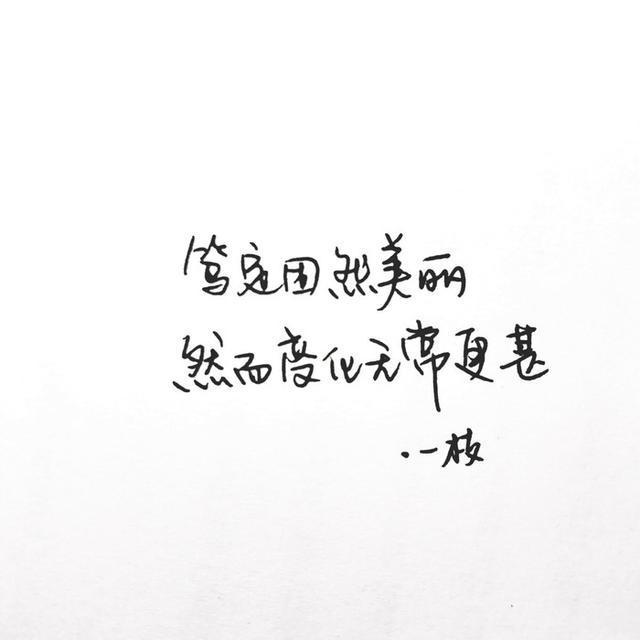 笃定固然美丽
然而变化无常更甚
·一枝